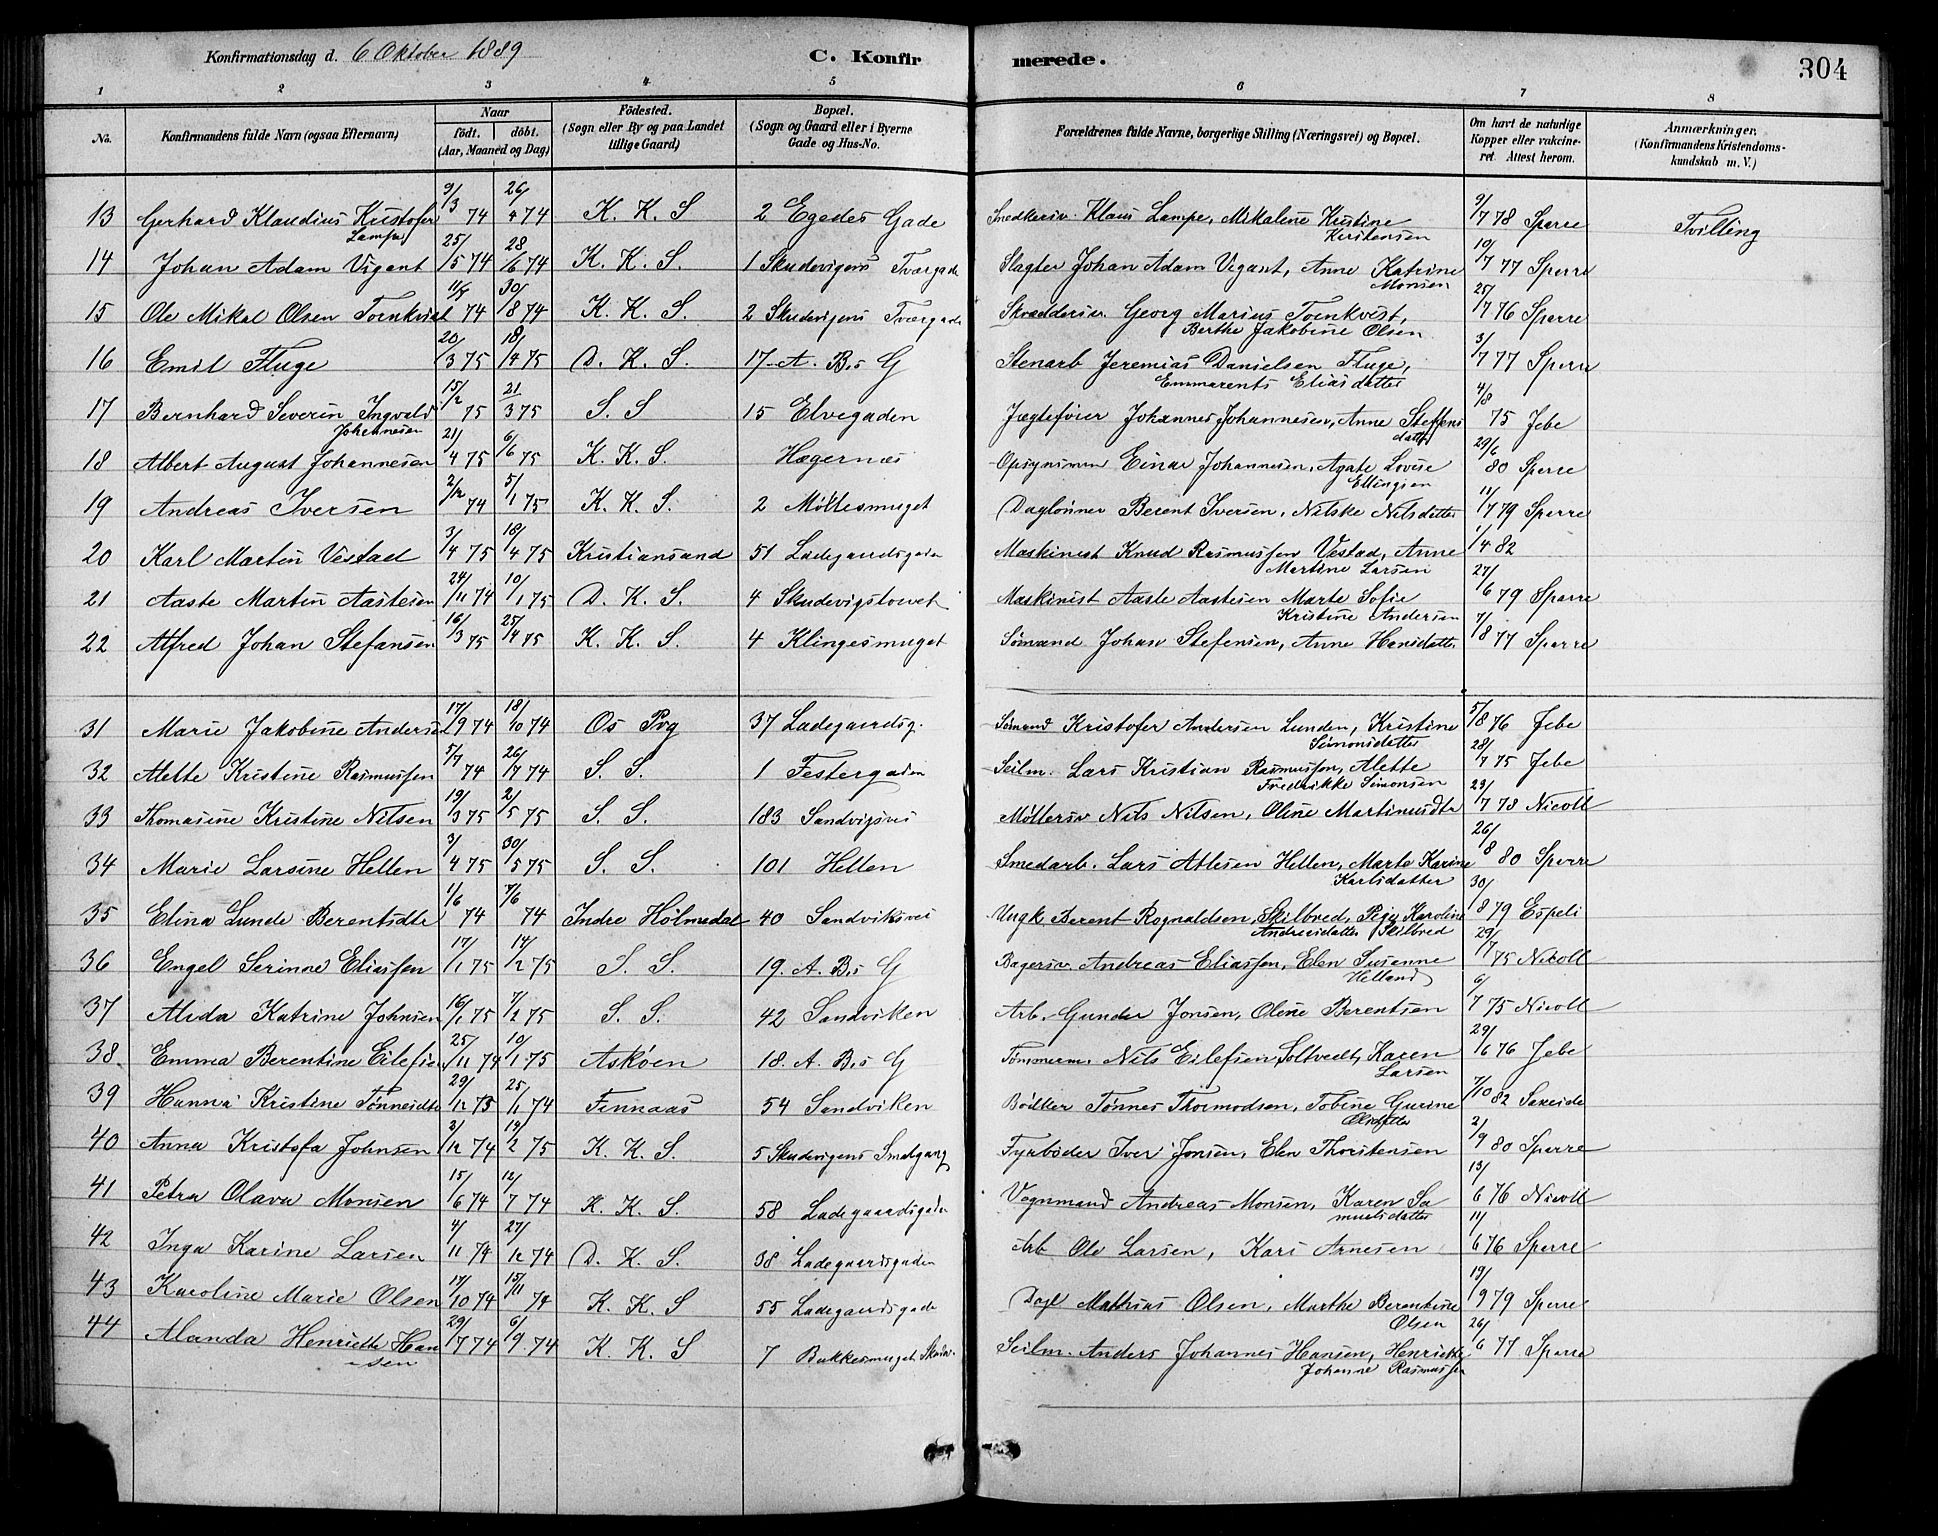 Konfirmationsdag d. 6 Oktober 1889 C. Konfirmerede. 304
1 2 3 4 5 6 7 8
No. Konfirmandens fulde Navn (ogsaa Efternavn) Naar født. døbt. (Aar, Maaned og Dag) Fødested. (Sogn eller By og paa Landet tillige Gaard) Bopæl. (Sogn og Gaard eller i Byerne Gade og Hus-No. Forældrenes fulde Navne, borgerlige Stilling (Næringsvei) og Bopæl. Om havt de naturlige Kopper eller vakcineret. Attest herom. Anmærkninger. (Konfirmandens Kristendomskundskab m. V.)
13 Gerhard Klaudius Kristofer Lampe 9/3 74 26/4 74 K. K. S 2 Egedes Gade Snedkersv. Klaus Lampe, Mikaline Kristine Kristensen 9/7 78 Sperre Tvilling
14 Johan Adam Vigant 25/5 74 28/6 74 K. K. S. 1 Skudevigens Tværgade Slagter Johan Adam Vigant, Anne Katrine Monsen 10/7 77 Sperre
15 Ole Mikal Olsen Tornkvist 74 30/8 74 K. K. S. 2 Skudevigens Tværgade Skræddersv. Georg Marius Tornkvist, Berthe Jakobine Olsen 25/7 76 Sperre
16 Emil Fluge 20/3 75 18/4 75 D. K. S. 17 A. B.s G Stenarb Jeremias Danielsen Fluge, Emmarents Eliasdatter 3/7 77 Sperre
17 Bernhard Severin Ingvald Johannesen 15/2 75 21/3 75 S. S 15 Elvegaden Jægtefører Johannes Johannesen, Anne Steffensdatter 4/8 75 Jebe
18 Albert August Johannesen 21/4 75 6/6 75 K. K. S. Hegernæs Opsynsmn Einar Johannesen, Agate Lovise Ellingsen 29/6 80 Sperre
19 Andreas Iversen 2/12 74 5/1 75 K. K. S. 2 Møllesmuget Daglønner Berent Iversen, Nilske Nilsdatter 11/7 79 Sperre
20 Karl Martin Vestad 3/4 75 18/4 75 Kristiansand 51 Ladegaardsgaden Maskinist Knud Rasmussen Vestad, Anne Martine Larsen 1/4 82
21 Aaste Martin Aastesen 24/11 74 10/1 75 D. K. S. 4 Skudevigstorvet Maskinist Aaste Aastesen Marte Sofie Kristine Andersen 27/6 79 Sperre
22 Alfred Johan Stefansen 16/3 75 25/4 75 K. K. S. 4 Klingesmuget Sømand Johan Stefensen, Anne Hansdatter 7/8 77 Sperre
31 Marie Jakobine Andersen 17/9 74 18/10 74 Os Pvg 37 Ladegaardsg. Sømand Kristofer Andersen Lunden, Kristine Simonsdatter 5/8 76 Jebe
32 Alette Kristine Rasmussen 5/7 74 26/7 74 S. S. 1 Festergaden Seilm. Lars Kristian Rasmussen, Alette Fredrikke Simonsen 28/7 75 Jebe
33 Thomasine Kristine Nilsen 19/3 75 2/5 75 S. S. 183 Sandvigsvei Møllersv Nils Nilsen, Oline Martinusdtr 23/7 78 Nicoll
34 Marie Larsine Hellen 3/4 75 30/5 75 S. S. 101 Hellen Smedarb. Lars Atlesen Hellen, Marte Karine Karlsdatter 26/8 80 Sperre
35 Elina Lunde Berentsdtr 1/6 74 7/6 74 Indre Hølmedal 40 Sandviksvei Ungk. Berent Rognaldsen Skilbred, Pige Karoline Andreasdatter Skilbred 30/8 79 Espeli
36 Engel Serinne Eliassen 17/1 75 14/2 75 S. S. 19. A. B.s G Bagersv. Andreas Eliassen, Elen Susanne Helland 29/7 75 Nicoll
37 Alida Katrine Johnsen 16/1 75 7/2 75 S. S. 42 Sandviken Arb. Gunder Jonsen, Oline Berentsen 6/7 75 Nicoll
38 Emma Berentine Eilefsen 25/11 74 10/1 75 Askøen 18. A. B.s G Tømmerm. Nils Eilefsen Soltvedt, Karen Larsen 29/6 76 Jebe
39 Hanna Kristine Tønnesdtr 29/12 73 25/1 74 Finnaas 54 Sandviken Bødker Tønnes Thormodsen, Tobine Gurine Olsdatter 7/10 82
40 Anna Kristofa Johnsen 2/12 74 19/2 75 K. K. S. 5 Skudevigens Smalgang Fyrbøder Iver Jonsen, Elen Thorstensen 2/9 80 Sperre
41 Petra Olava Monsen 15/6 74 12/7 74 K. K. S. 58 Ladegaardsgaden Vognmand Andreas Monsen, Karen Samuelsdatter 13/6 76 Nicoll
42 Inga Karine Larsen 4/11 74 27/12 74 D. K. S. 38 Ladegaardsgaden Arb Ole Larsen, Kari Arnesen 11/6 76 Sperre
43 Karoline Marie Olsen 17/10 74 15/11 74 K. K. S 55 Ladegaardsgade Dagl Mathias Olsen, Marthe Berentine Olsen 19/9 79 Sperre
44 Alanda Henriette Hansen 29/7 74 6/9 74 K. K. S 7 Bakkesmuget Skudev. Seilm. Anders Johannes Hansen, Henrikke Johanne Rasmussen 26/6 77 Sperre